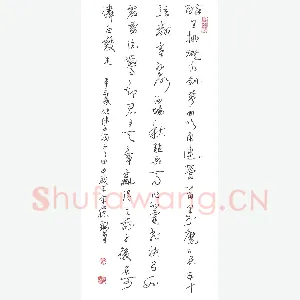 醉里挑灯看剑梦回吹角连营八百里分麾下炙五十
弦翻塞外声沙场秋点兵马作的卢飞快弓如
霹雳弦惊了却君王天下事赢得生前身后名可
怜白发生 辛弃疾
Shufawang.CN